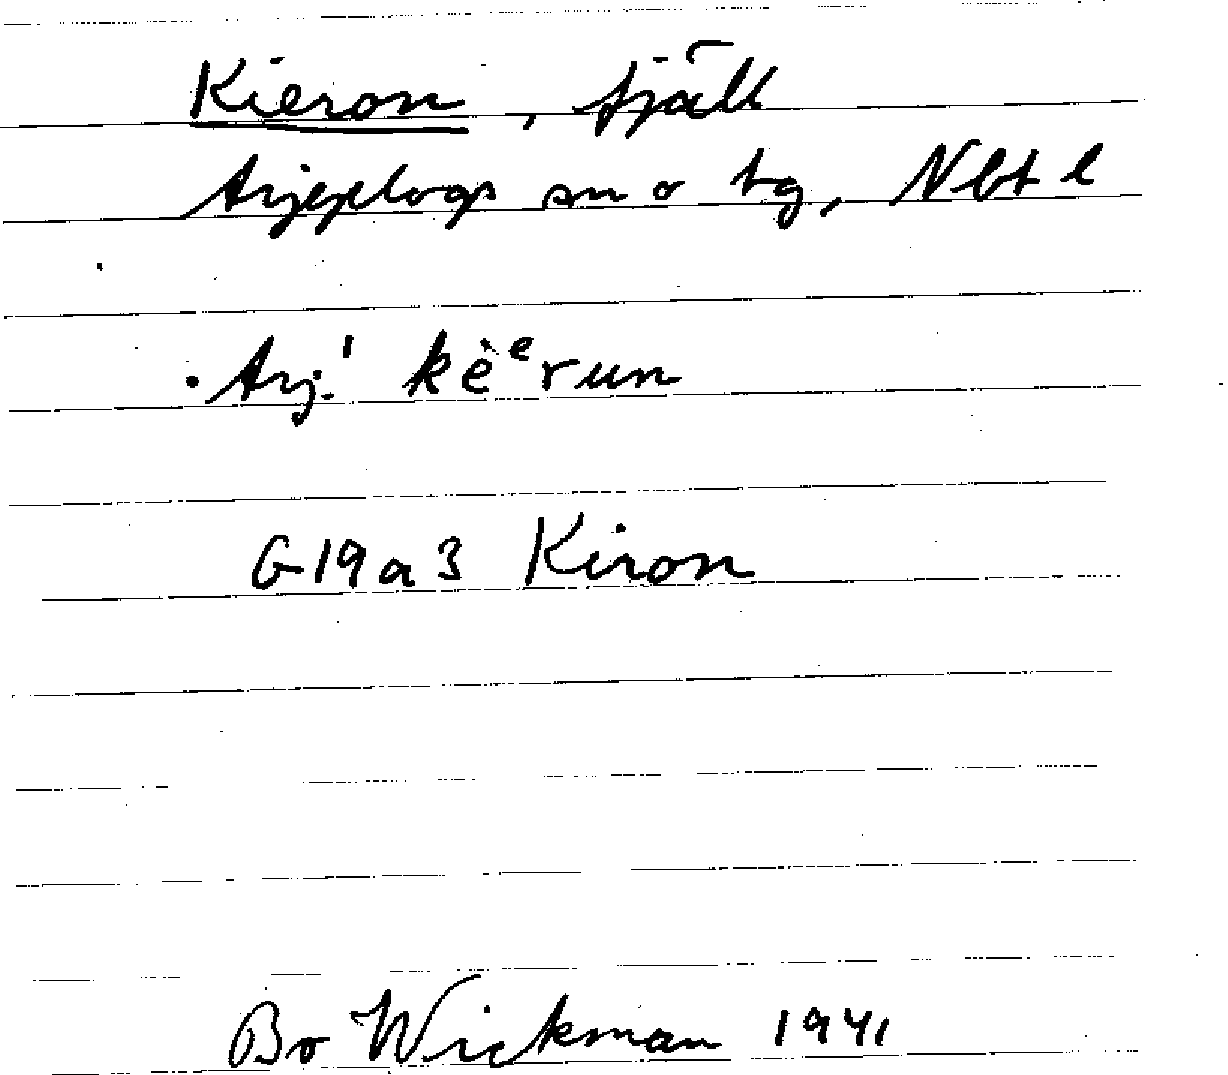 Kieron, fjäll
Arjeplogs sn o tg, Nbt l
Arj.' kèᵉrun
G19a3 Kiron
Bo Wickman 1941